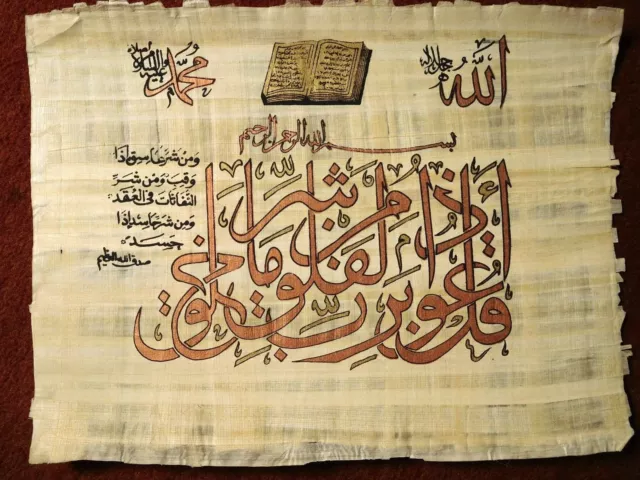 الله جل جلاله
محمد عليه الصلاة والسلام
بسم الله الرحمن الرحيم
قل أعوذ برب الفلق من شر ما خلق
ومن شر غاسق اذا
وقب ومن شر
النفاثات في العقد
ومن شر حاسد اذا
حسد
صدق الله العظيم